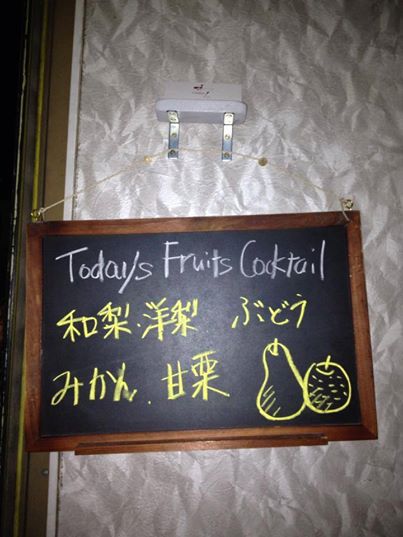 Today's Fruits Cocktail
和梨.洋梨 ぶどう
みかん.甘栗